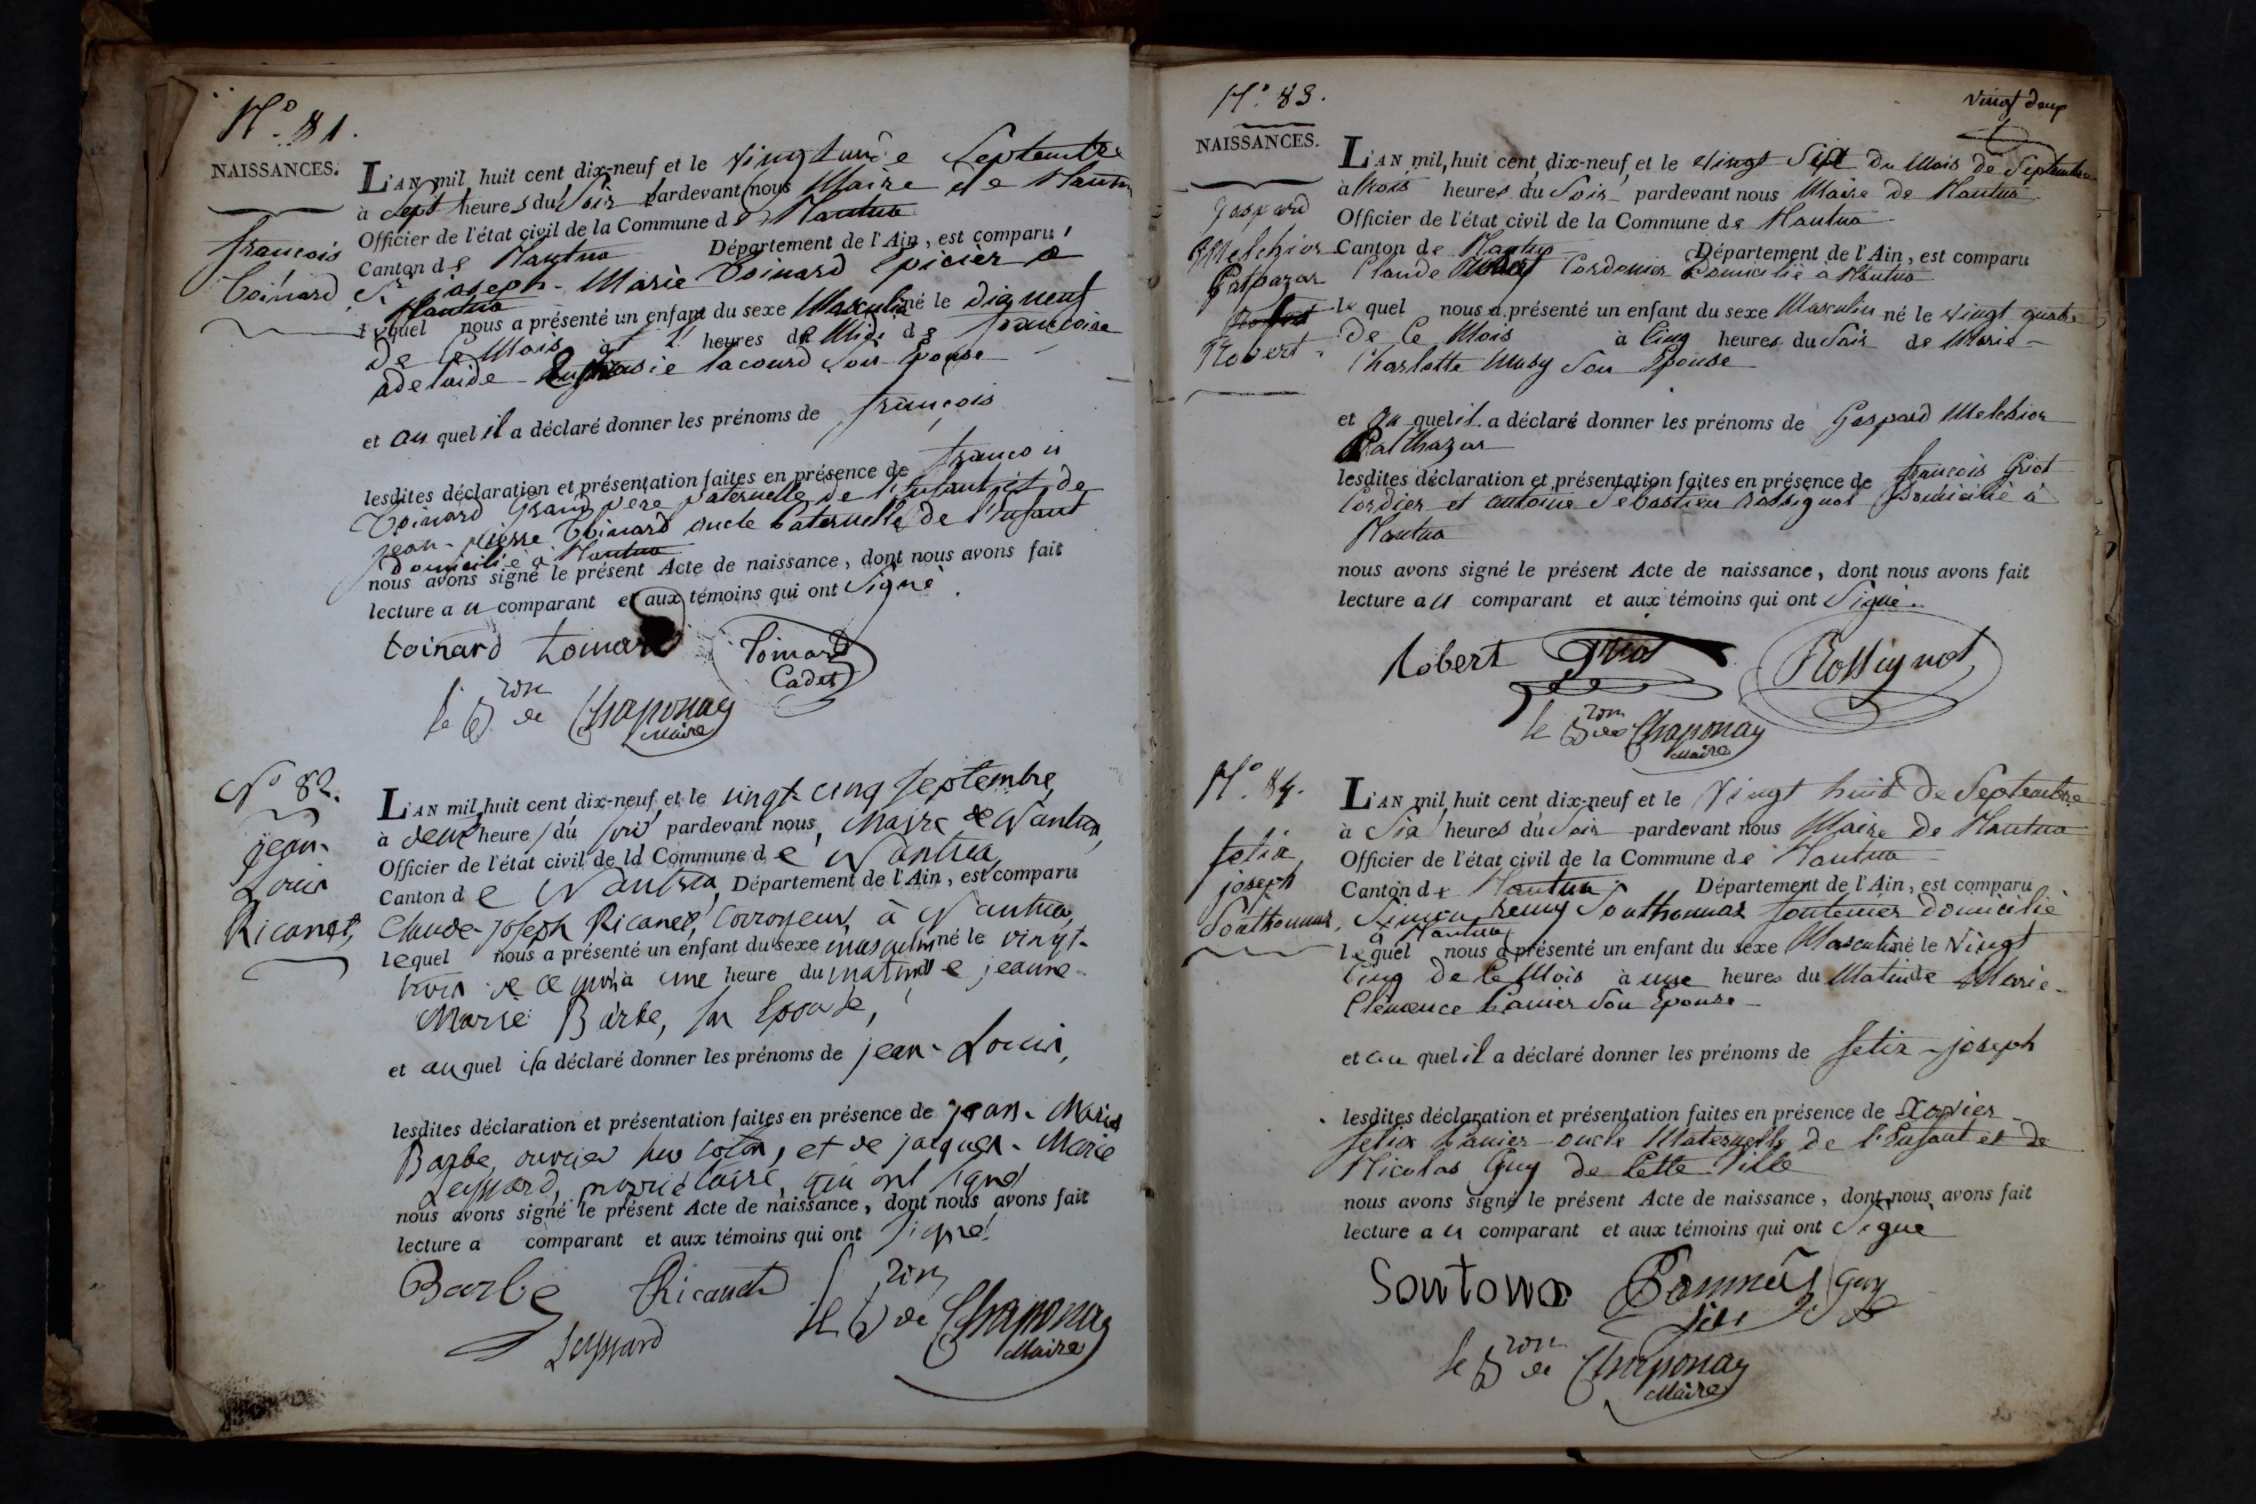 N.° 81.
NAISSANCES.
francois
Toinard
L'AN mil huit cent dix-neuf et le Vingt un de Septembre
à Sept heures du Soir pardevant nous Maire de Nantua
Officier de l'état civil de la Commune de Nantua
Canton de Nantua Département de l'Ain, est comparu
Sr. joseph-Marie Toinard Epicier a
Nantua
lequel nous a présenté un enfant du sexe Masculin né le dix neuf
de Ce Mois à heures de Midi de françoise
adelaide lacourd Son Epouse
et au quel il a déclaré donner les prénoms de françois
lesdites déclaration et présentation faites en présence de francois
Toinard Grand père paternelle de l'Enfant et de
jean-pierre Toinard oncle Paternelle de l'Enfant
domicilié à Nantua
nous avons signé le présent Acte de naissance, dont nous avons fait
lecture au comparant et aux témoins qui ont Signé.
toinard toinard Toinard
Cadet
le Bon de Chaponay
Maire
N° 82.
jean-
Louis
Ricanet,
L'AN mil huit cent dix-neuf et le vingt-cinq Septembre,
à deux heures du soir pardevant nous, Maire de Nantua,
Officier de l'état civil de la Commune de Nantua,
Canton de Nantua, Département de l'Ain, est comparu
Claude-joseph Ricanet, Corroyeur, à Nantua,
lequel nous a présenté un enfant du sexe masculin né le vingt-
trois de ce mois à une heure du matin de jeanne-
Marie Barbe, son Epouse,
et auquel il a déclaré donner les prénoms de jean-Louis,
lesdites déclaration et présentation faites en présence de jean-Marie
Barbe, ouvrier en coton, et de jacques-Marie
Leyssard, propriétaire, qui ont signé
nous avons signé le présent Acte de naissance, dont nous avons fait
lecture a comparant et aux témoins qui ont signé.
Barbe Ricanet
Leyssard
le Bon de Chaponay
Maire
vingt deux
N.° 83.
NAISSANCES.
Gaspard
Melchior
Baltazar
Robert
L'AN mil huit cent dix-neuf et le vingt Sept du Mois de Septembre
à trois heures du Soir pardevant nous Maire de Nantua
Officier de l'état civil de la Commune de Nantua
Canton de Nantua Département de l'Ain, est comparu
Claude Robert Cordonier Domicilié a Nantua
le quel nous a présenté un enfant du sexe Masculin né le vingt quatre
de Ce Mois à Cinq heures du Soir de Marie-
Charlotte Musy Son Epouse
et au quel il a déclaré donner les prénoms de Gaspard Melchior
Balthazar
lesdites déclaration et présentation faites en présence de francois Griot
Cordier et antoine Sebastien Rossignol Domicilié à
Nantua
nous avons signé le présent Acte de naissance, dont nous avons fait
lecture au comparant et aux témoins qui ont Signé.
Robert Griot Rossignol
le Bon de Chaponay
Maire
N.° 84.
felix,
joseph
Southonnax,
L'AN mil huit cent dix-neuf et le Vingt huit De Septembre
à Six heures du Soir pardevant nous Maire de Nantua
Officier de l'état civil de la Commune de Nantua
Canton de Nantua Département de l'Ain, est comparu
Simon remy Southonnax fontenier domicilié
à Nantua
lequel nous a présenté un enfant du sexe Masculin né le Vingt
Cinq de Ce Mois à une heures du Matin de Marie-
Clémence Son Epouse
et au quel il a déclaré donner les prénoms de felix-joseph
lesdites déclaration et présentation faites en présence de Xavier
felix oncle Maternelle de l'Enfant et de
Nicolas Guy de Cette Ville
nous avons signé le présent Acte de naissance, dont nous avons fait
lecture au comparant et aux témoins qui ont Signé
Guy
le Bon de Chaponay
Maire